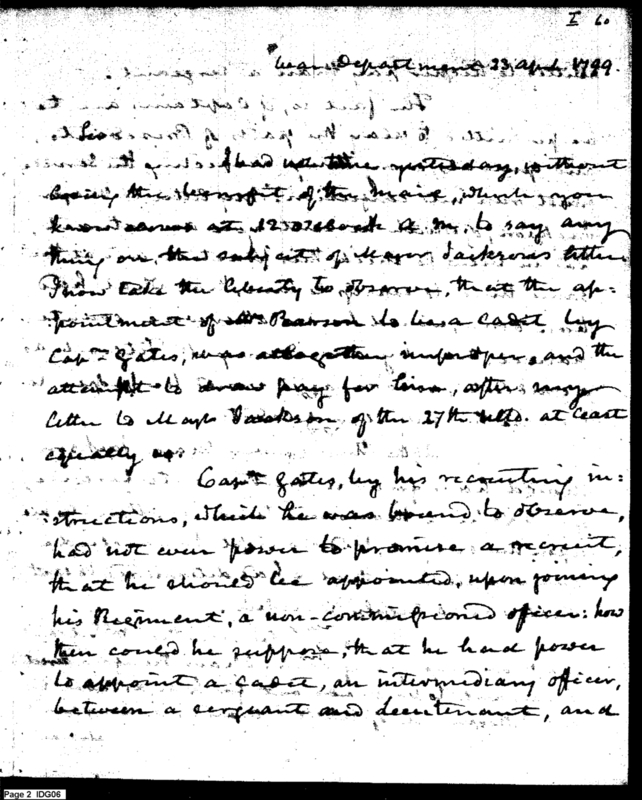 I 60
War Department 23 April 1799.
Sir
I had not time yesterday, without
losing the benefit of the mail, which you
know closes at 12 oClock A M. to say any
thing on the subject of Major Jacksons letter
I now take the liberty to observe, that the ap=
pointment of Mr to be a cadet by
Capn. Gates, was altogether improper, and the
attempt to draw pay for him, after my
letter to Major Jackson of the 27th ulto. at least
equally so.
Capn. Gates, by his recruiting in=
structions, which he was bound to observe,
had not even power to promise a recruit,
that he should be appointed, upon joining
his Regiment, a non-commissioned officer: how
then could he suppose, that he had power
to appoint a cadet, an intermediary officer,
between a serguant and Lieutenant, and
Page 2 IDG06